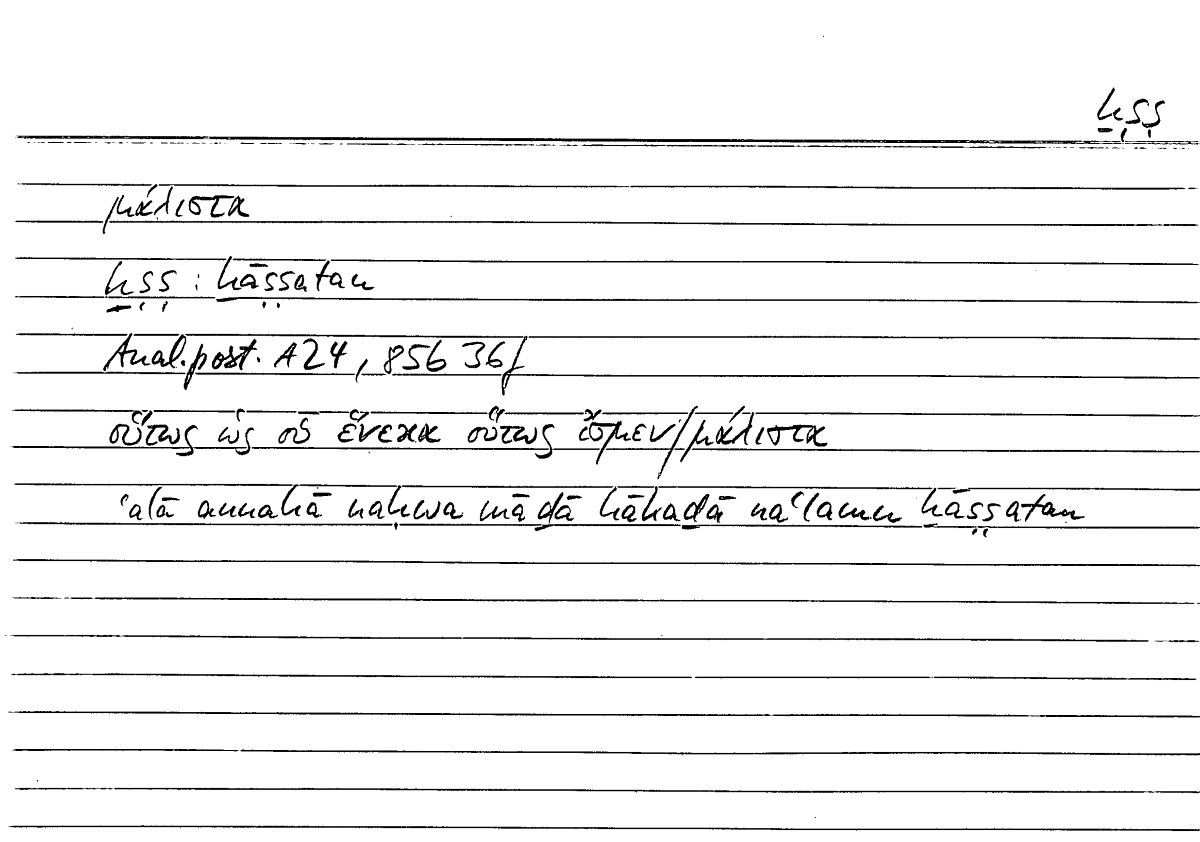 ḫṣṣ
μάλιστα
ḫṣṣ : ḫāṣṣatan
Anal.post. A24, 85b 36f
οὕτως ὡς οὗ ἕνεκα οὕτως ἴσμεν/μάλιστα
ʿalā annahā naḥwa māḏā hākaḏā naʿlamu ḫāṣṣatan